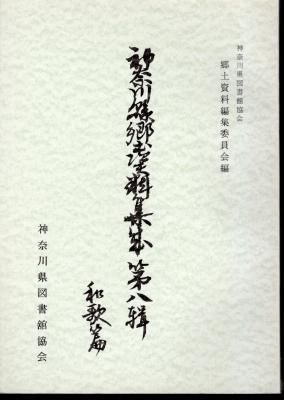 神奈川県図書館協会
郷土資料編集委員会編
神奈川縣郷土資料集成第八輯
和歌篇
神奈川県図書館協会